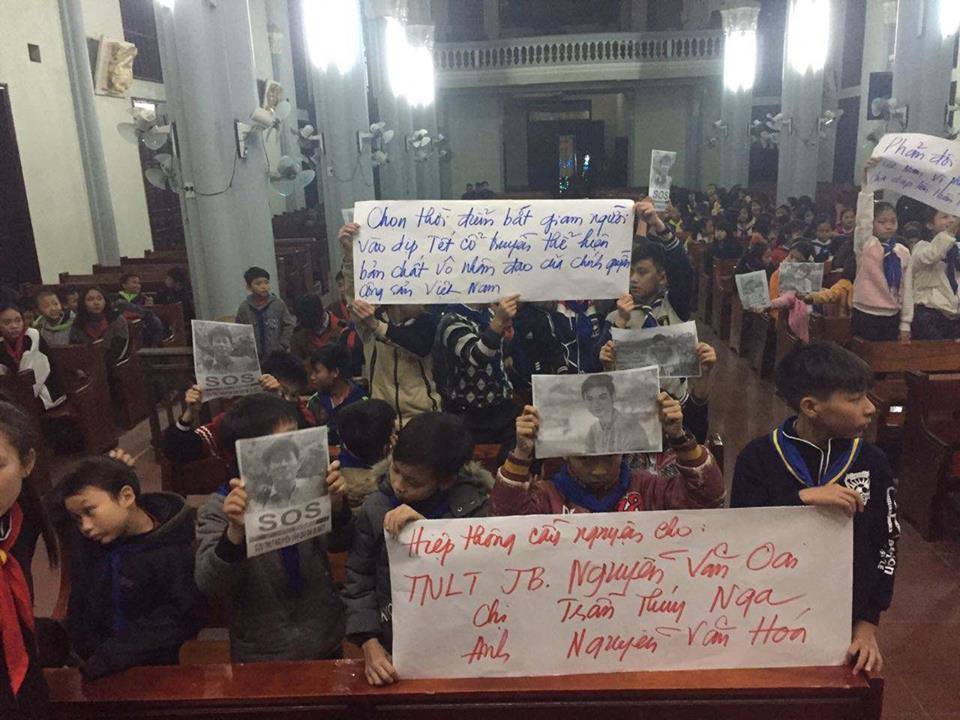 Chọn thời điểm bắt giam người
vào dịp Tết cổ truyền thể hiện
bản chất vô nhân đạo của chính quyền
cộng sản Việt Nam
Phản đối
SOS
SOS
Hiệp thông cầu nguyện cho:
TNLT JB. Nguyễn Văn Oai
Chị Trần Thúy Nga,
Anh Nguyễn Văn Hoá